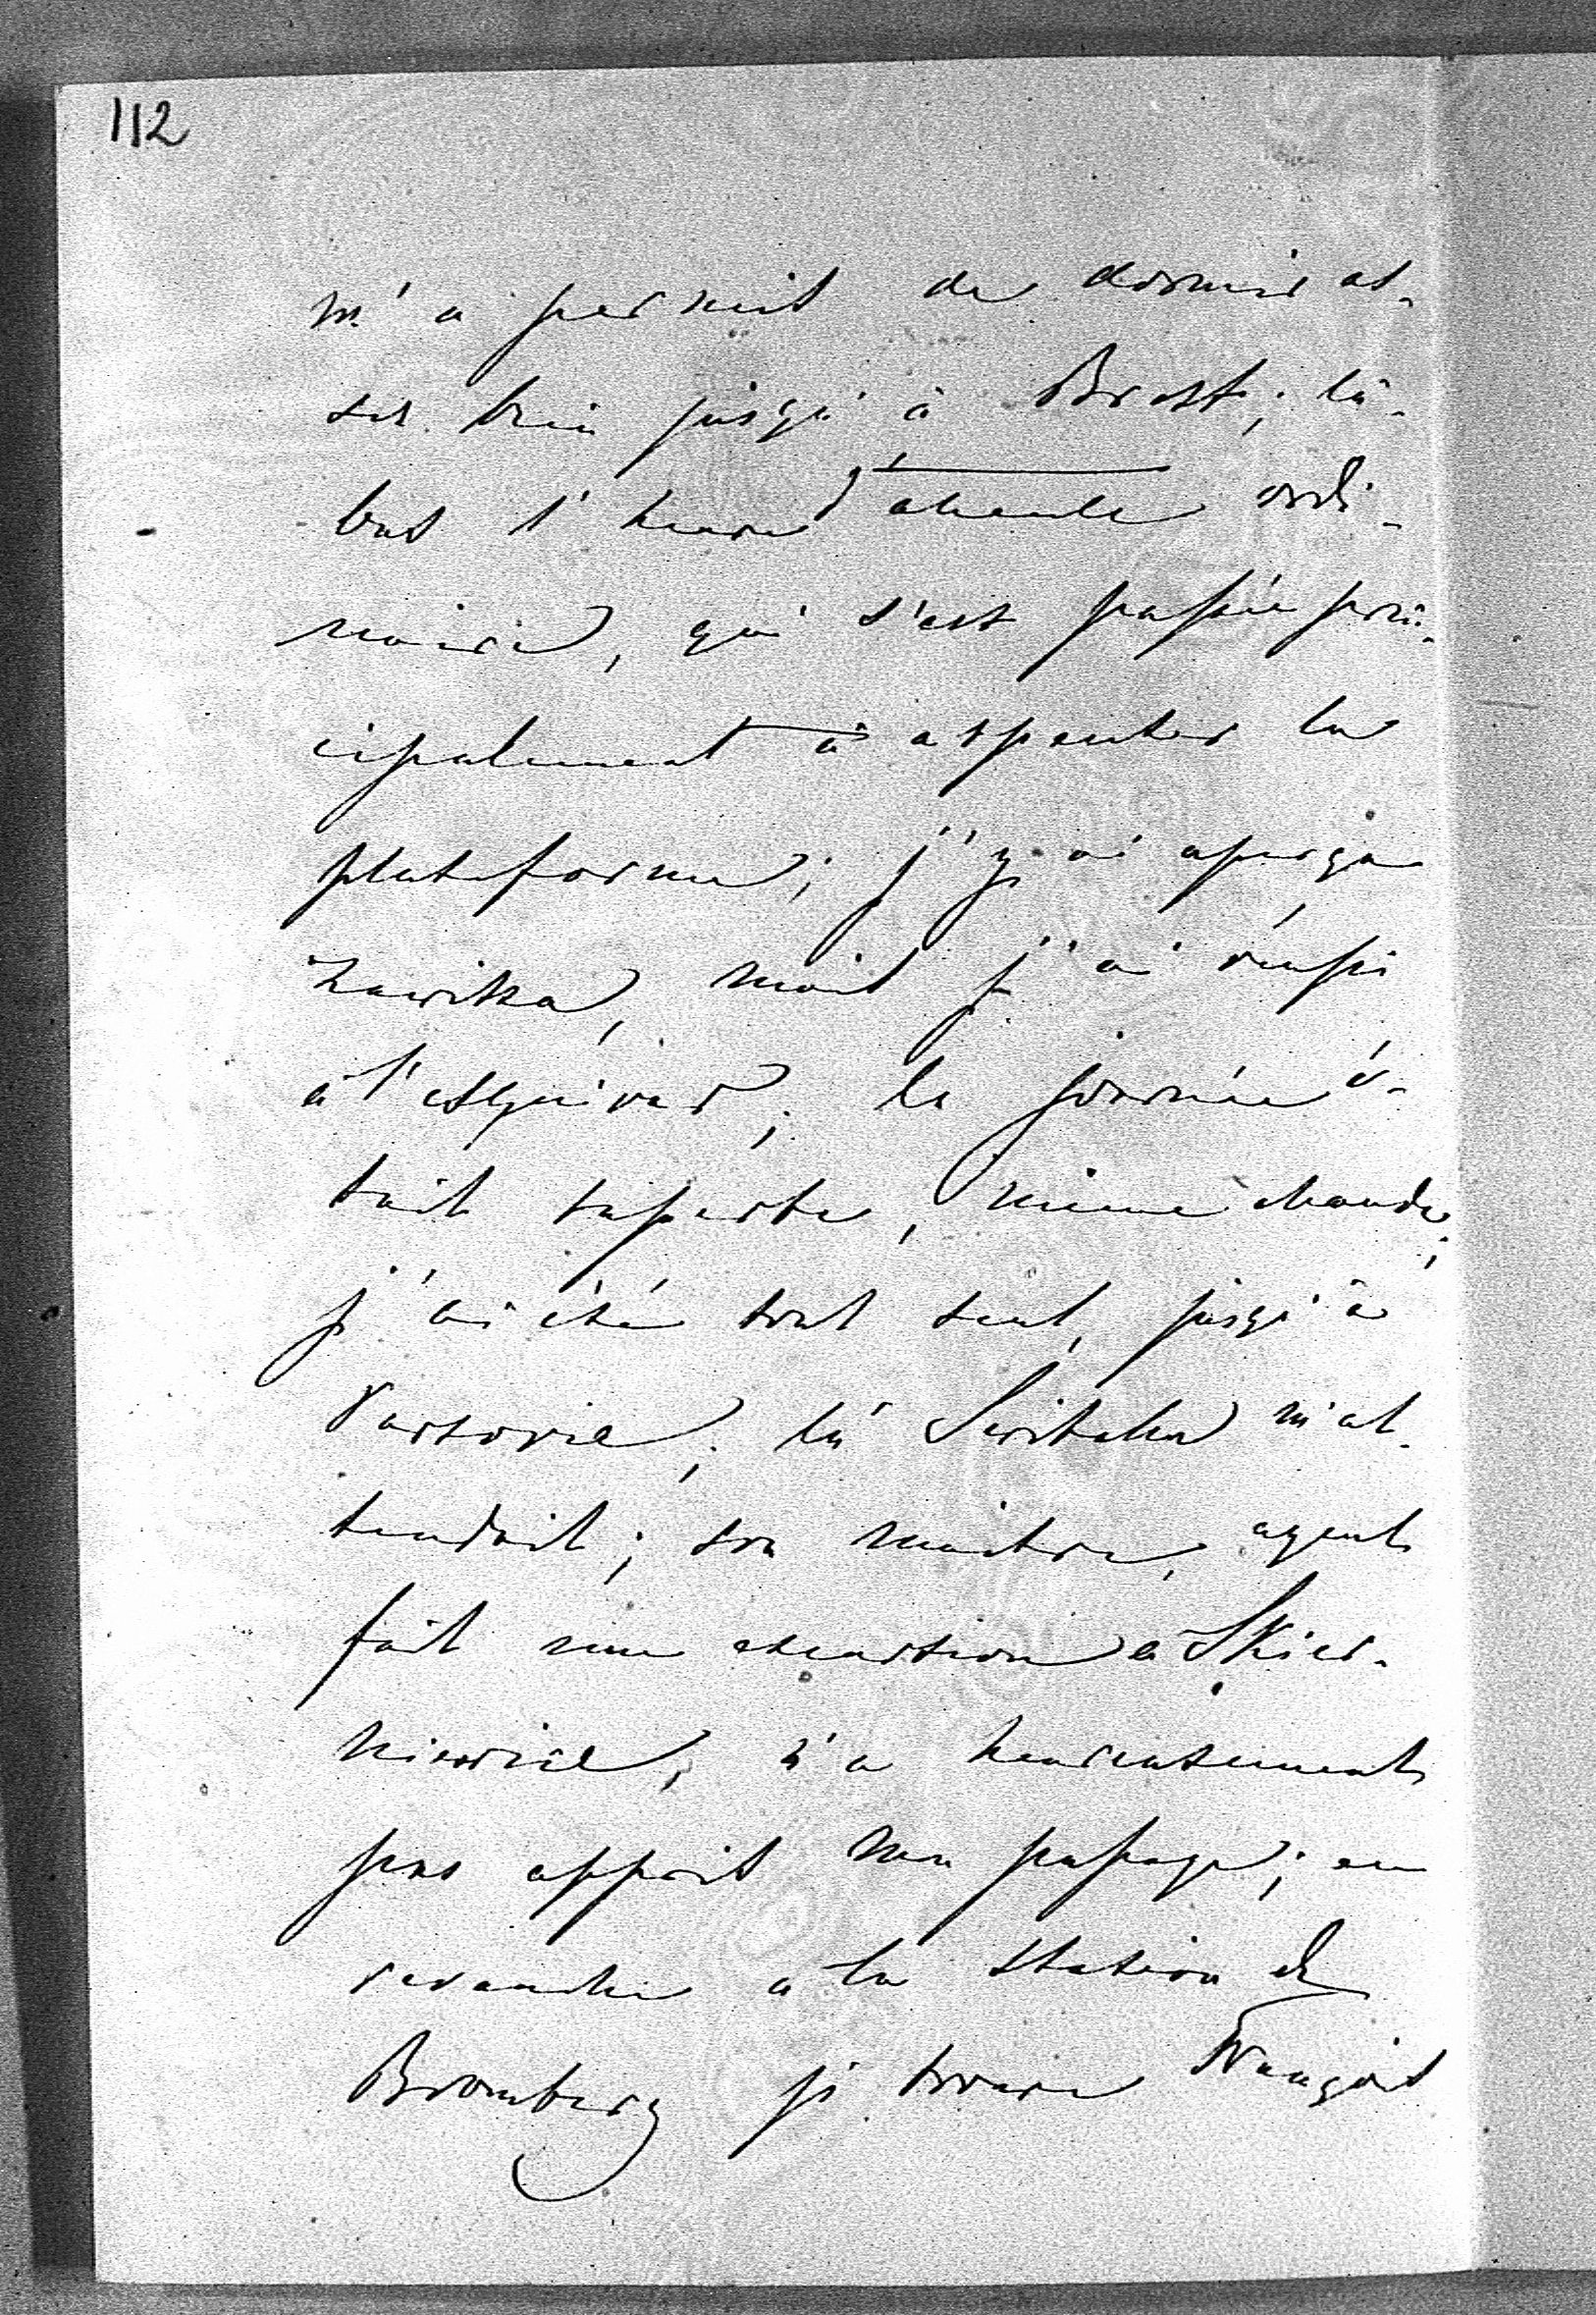 112
m'a permit de dormir as-
sez bien jusqu'à Brest; là-
bas l'heure d'attente ordi-
naire, qui s'est passée prin-
cipalement à arpenter la
plateforme; j'y ai aperçu
mais j'ai réussi
à l'esquiver; la journée é-
tait superbe, même chaude;
j'ai été tout seul, jusqu'à
Varsovie; là m'at-
tendait; son maitre, ayant
fait une excursion à Skier-
niewice, n'a heureusement
pas appris mon passage; en
revanche à la station de
Bromberg je trouve François